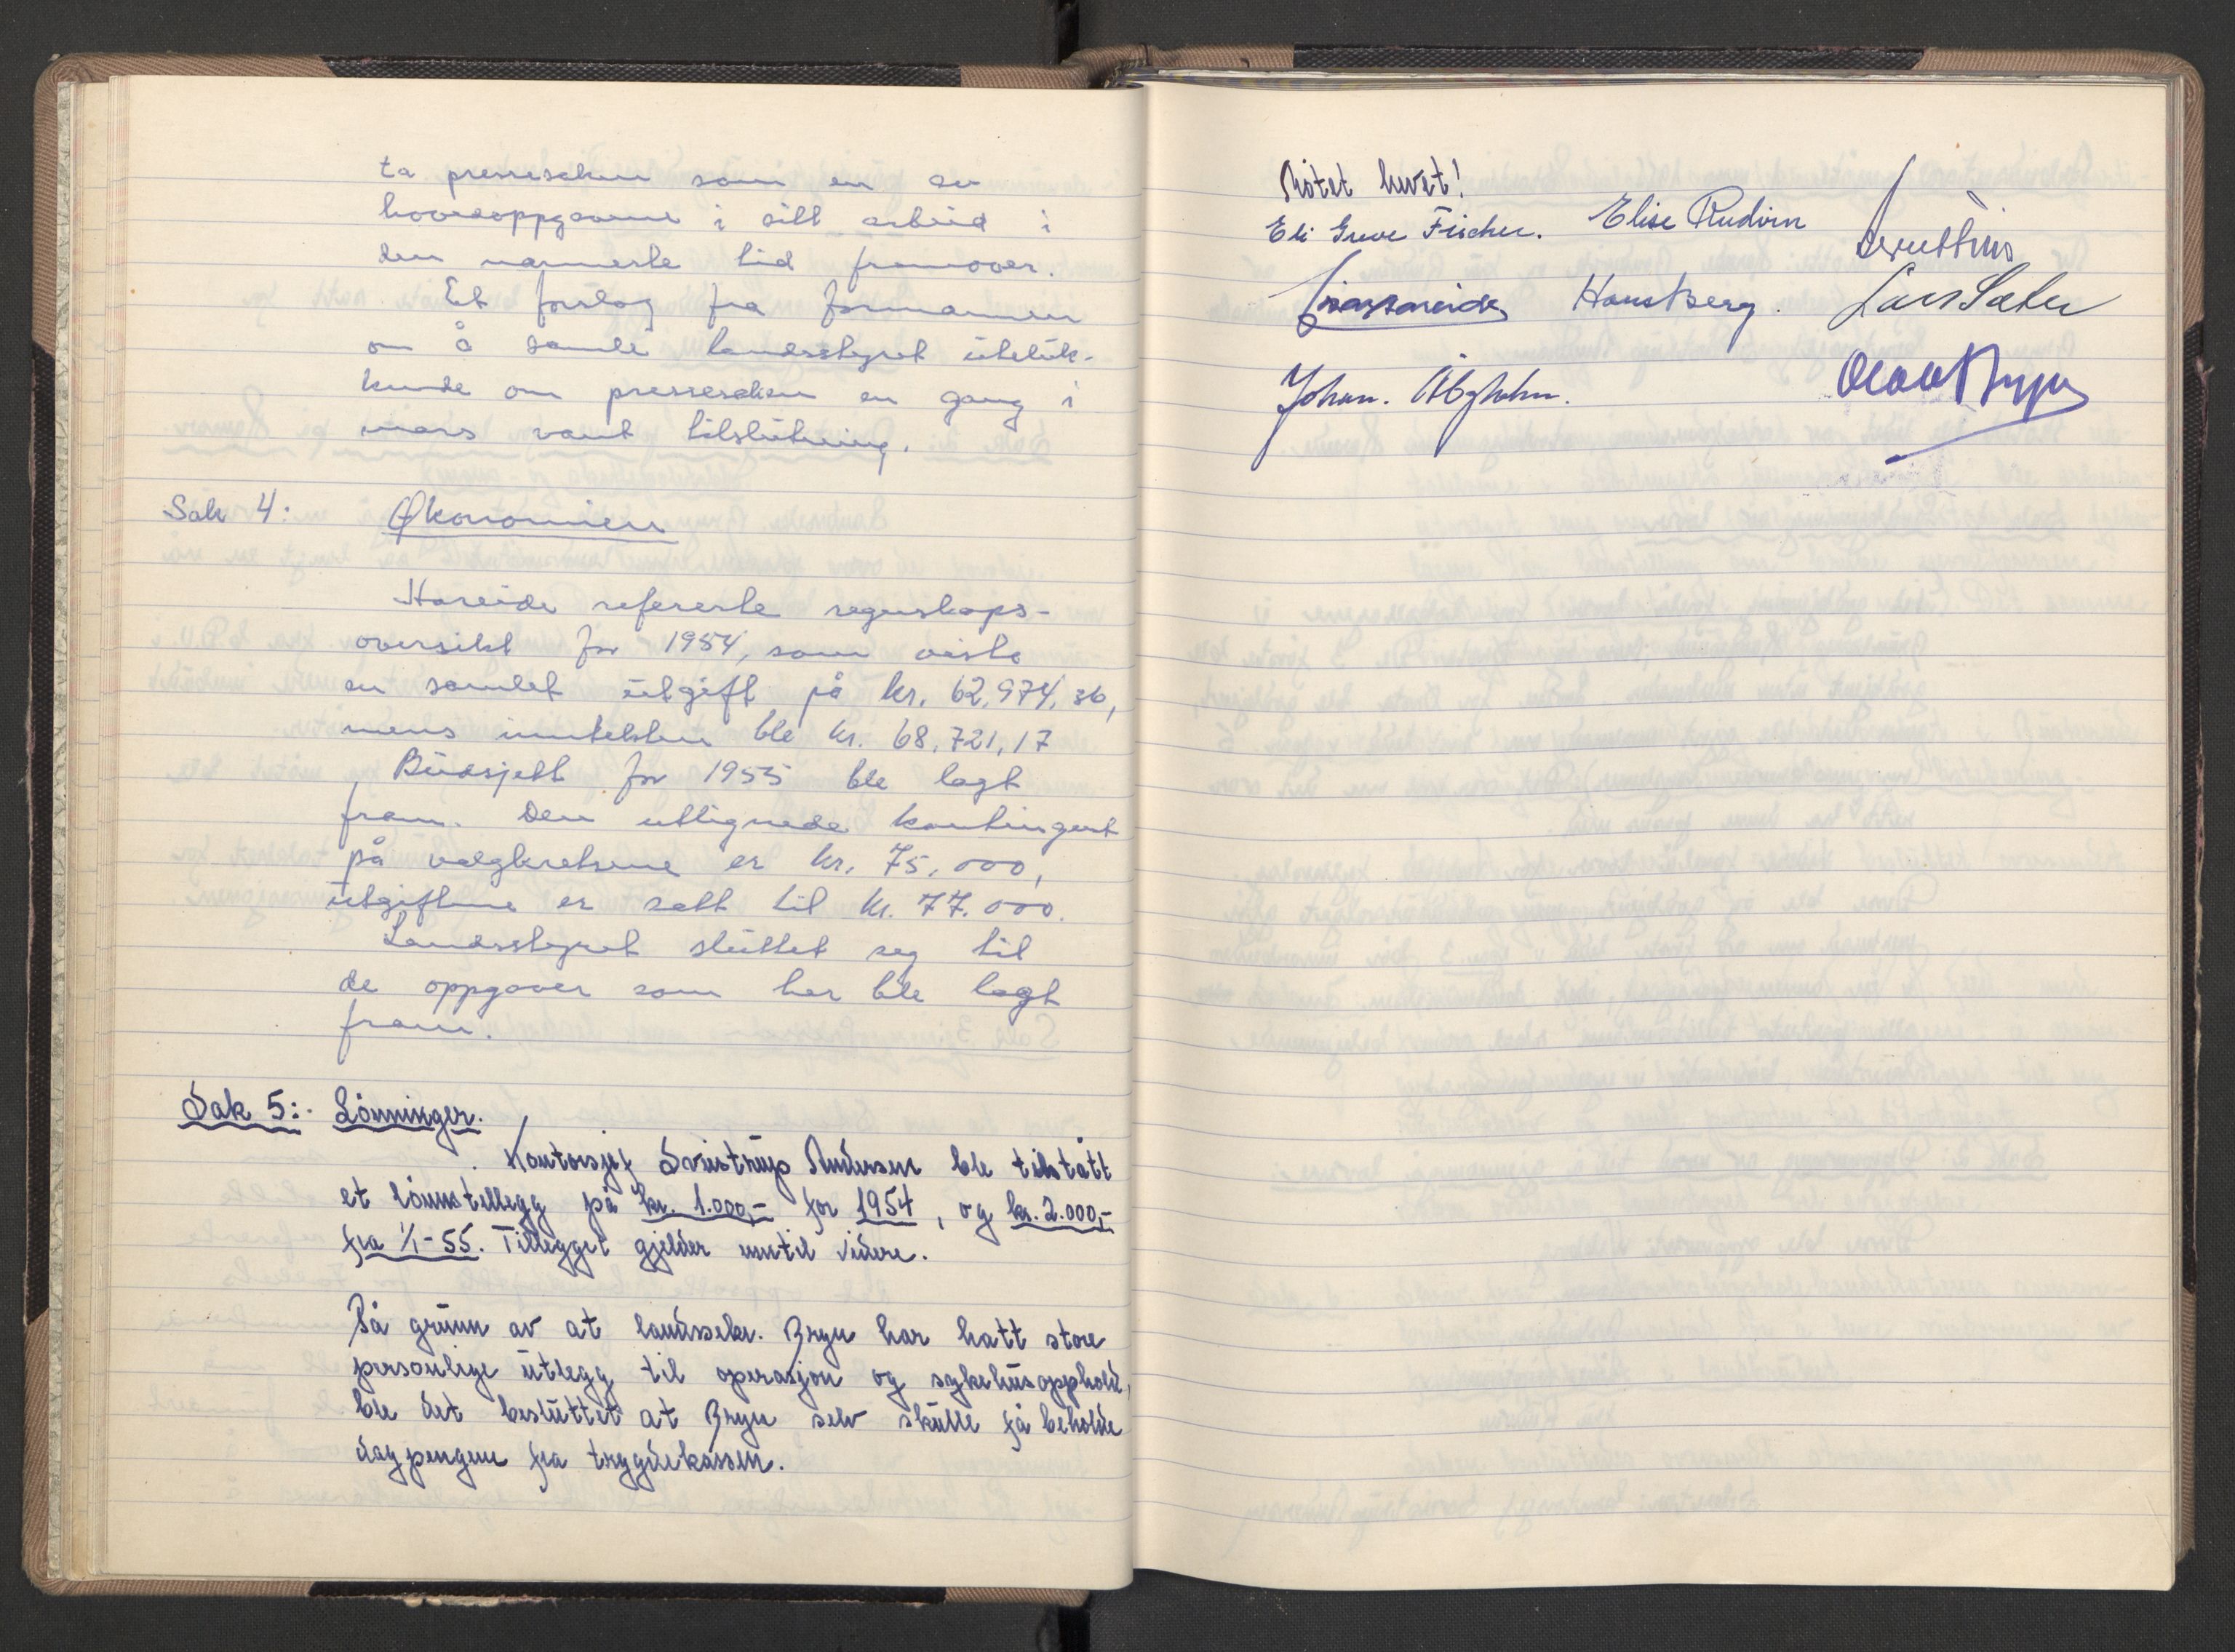 ta pressesaken som en av
hovedoppgavene i sitt arbeid i
den nærmeste tid framover.
Et forslag fra formannen
om å samle landsstyret utelük-
kende om pressesaken en gang i
mars vant tilslutning.
Sak 4: Økonomien
Hareide refererte regnskaps-
oversikt for 1954, som viste
en samlet utgift på kr. 62,974,36,
mens inntekten ble kr. 68,721,17
Budsjett for 1955 ble lagt
fram. Den utlignede kontingent
på valgkretsene er kr. 75,000,
utgiftene er satt til kr. 77.000.
Landsstyret sluttet seg til
de oppgaver som her ble lagt
fram.
Sak 5:. Lönninger.
Kontorsjef Svistrup Andersen ble tilstått
et lönnstillegg på kr. 1.000,- for 1954, og kr. 2.000,-
fra 1/1-55. Tillegget gjelder inntil videre.
På grunn av at landssekr. Bryn har hatt store
personlige utlegg til operasjon og sykehusopphold,
ble det besluttet at Bryn selv skulle få beholde
dagpengene fra trygdekassen.
Mötet hevet!
Eli Greve Fischer. Elise Rudvin
Hans Berg. Lars Sæter
Johan.